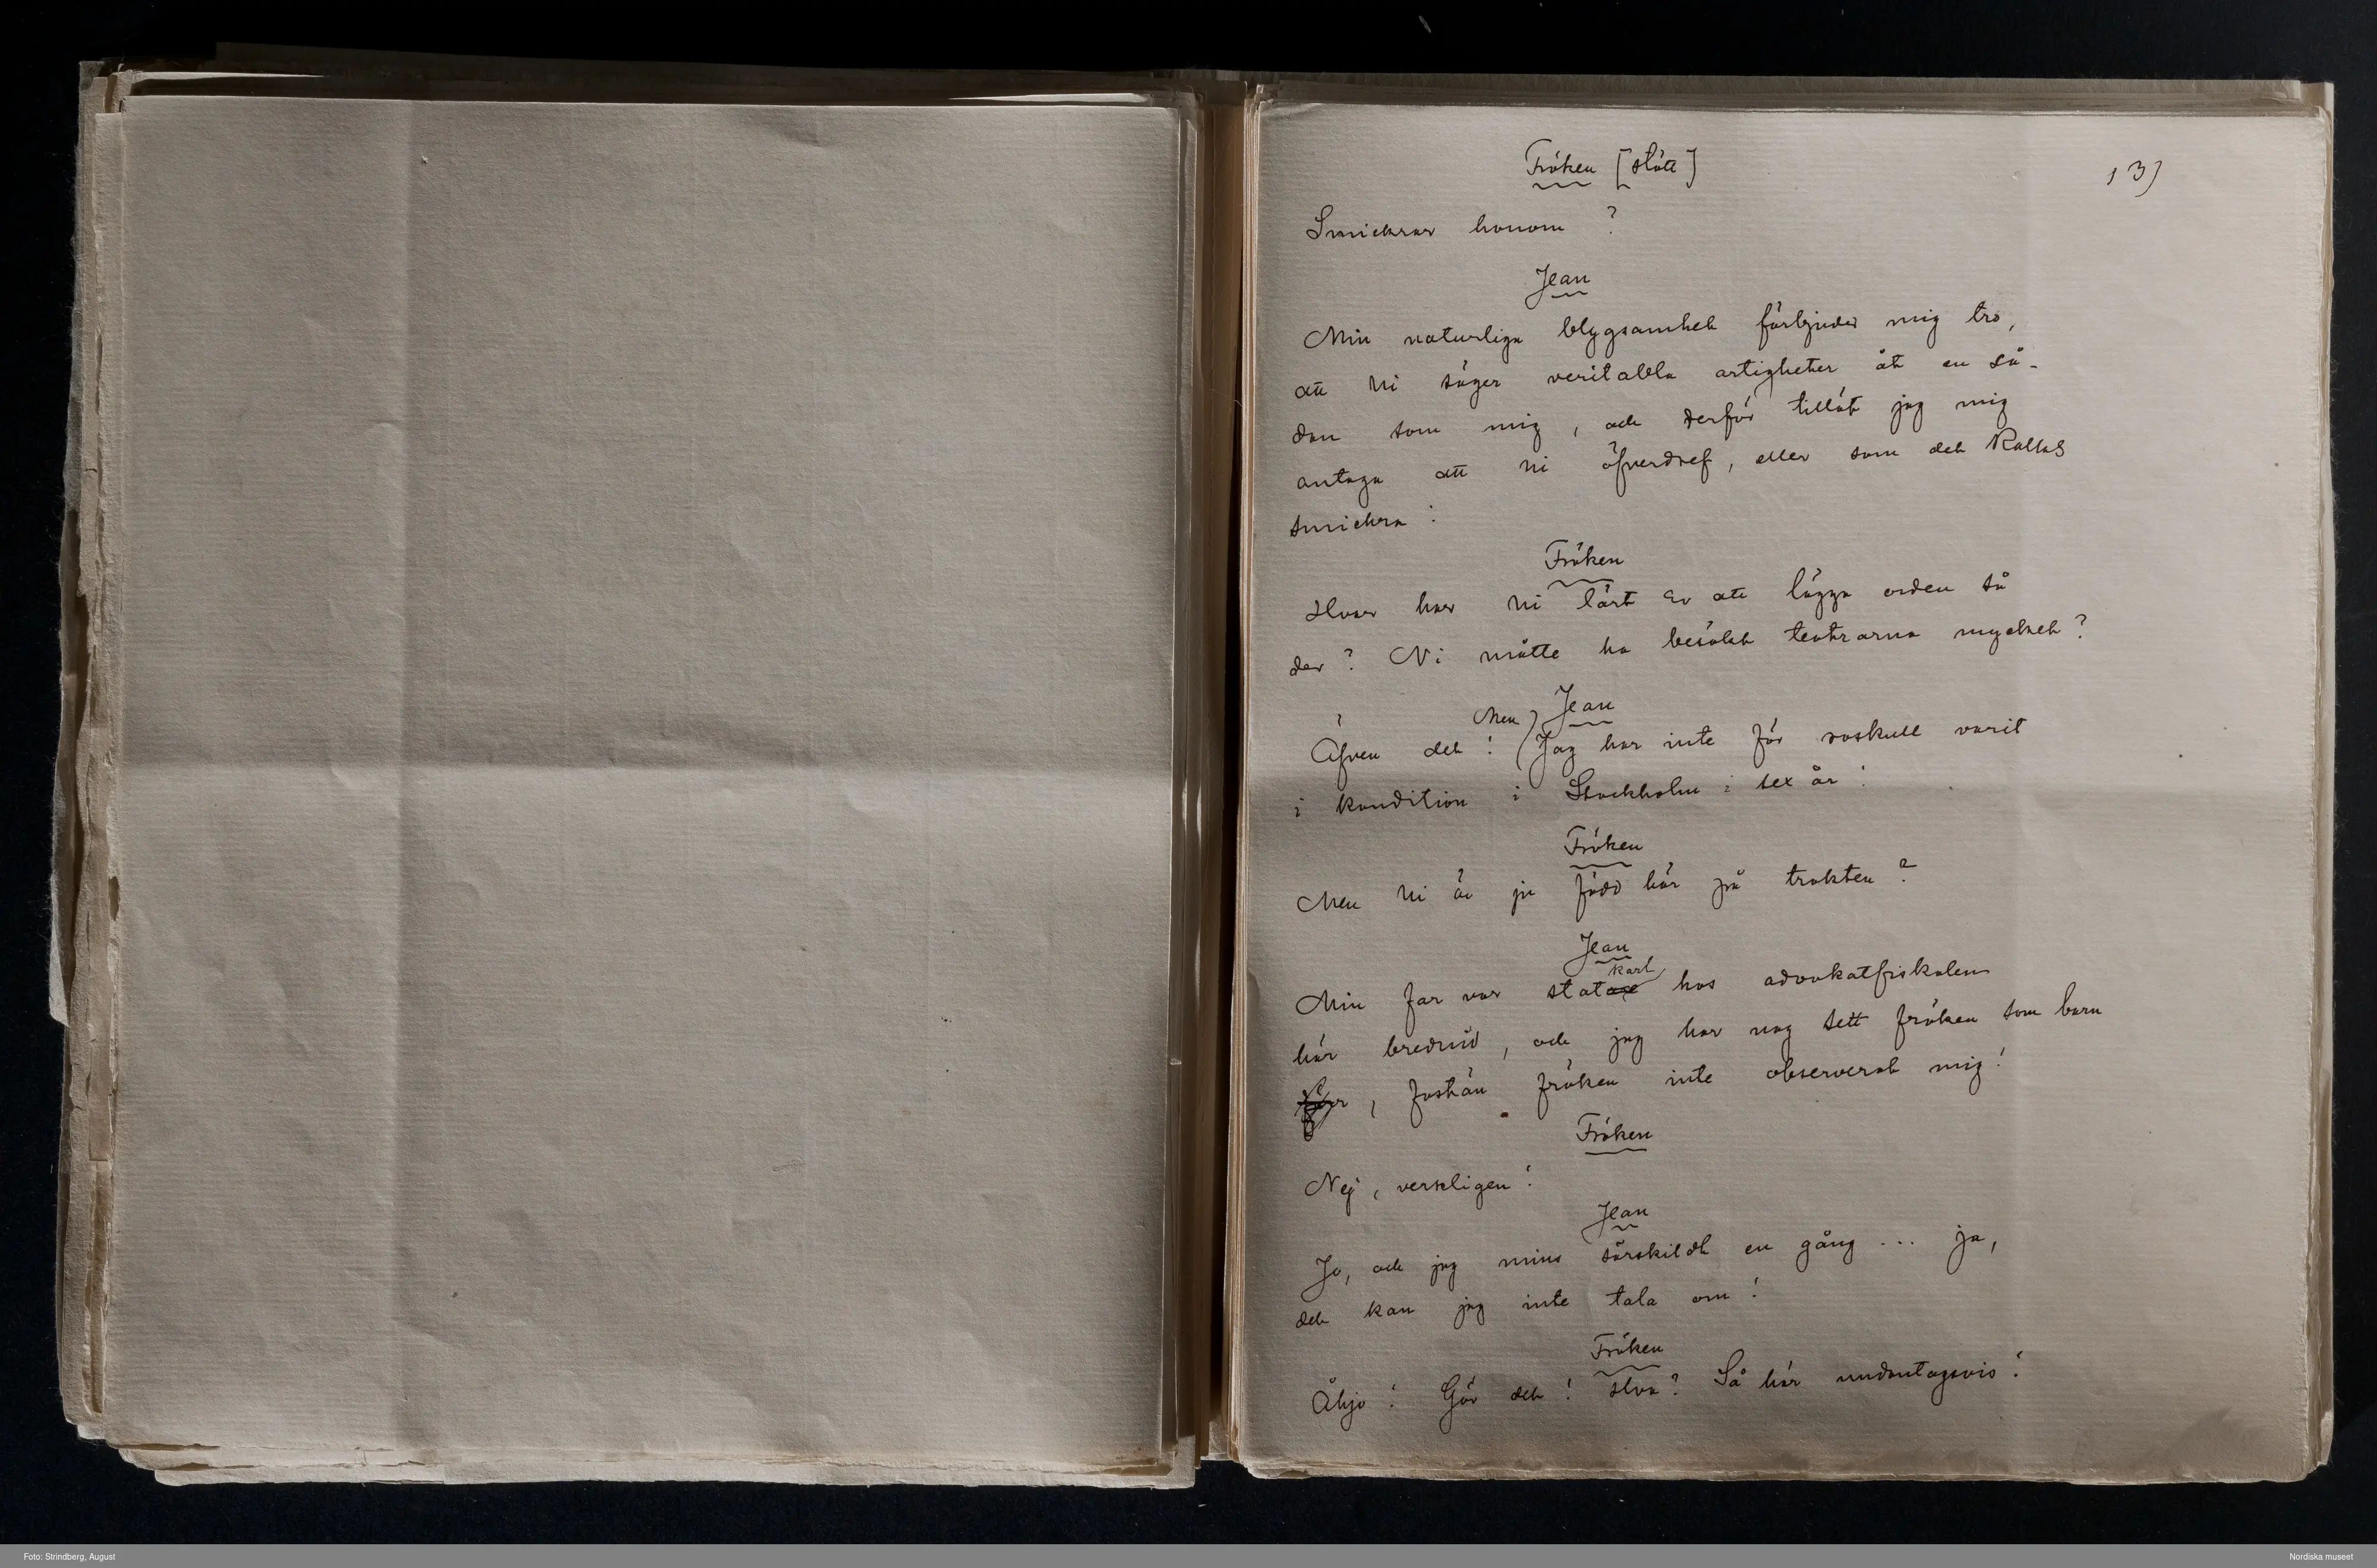 Fröken [stött]
13)
Smickrar honom?
Jean
Min naturliga blygsamhet förbjuder mig tro,
att Ni säger veritabla artigheter åt en så-
dan som mig, och derför tillät jag mig
antaga att ni öfverdref, eller som det kallas
smickra!
Fröken
Hvar har Ni lärt Er att lägga orden så
der? Ni måtte ha besökt teatrarna mycket?
Jean
Men
Äfven det! Jag har inte för roskull varit
i kondition i Stockholm i sex år!
Fröken
Men Ni är ju född här på trakten?
Jean
karl
Min far var statare hos advokatfiskalen
här bredvid, och jag har nog sett fröken som barn
, fastän fröken inte observerat mig!
Fröken
Nej, verkligen!
Jean
Jo, och jag mins särskildt en gång ... ja,
det kan jag inte tala om!
Fröken
Åhjo! Gör det! Hva? Så här undantagsvis!
Foto: Strindberg, August
Nordiska museet